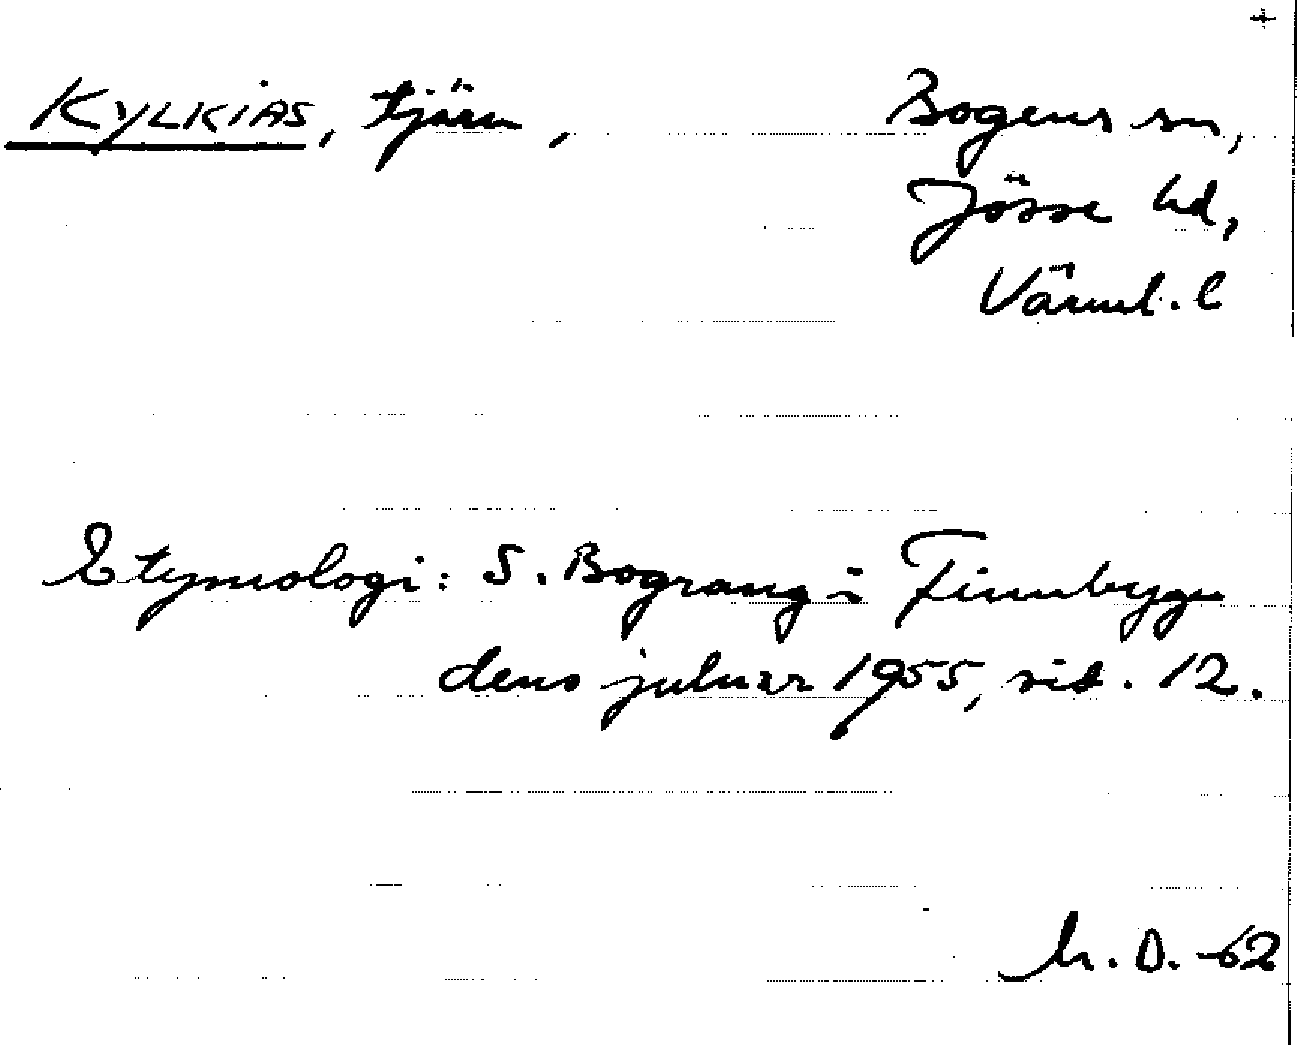 +
KYLKIAS, tjärn, Bogens sn,
Jösse hd,
Värml. l
Etymologi: S. Bograng i Finnbygdens julnr 1955, sid. 12.